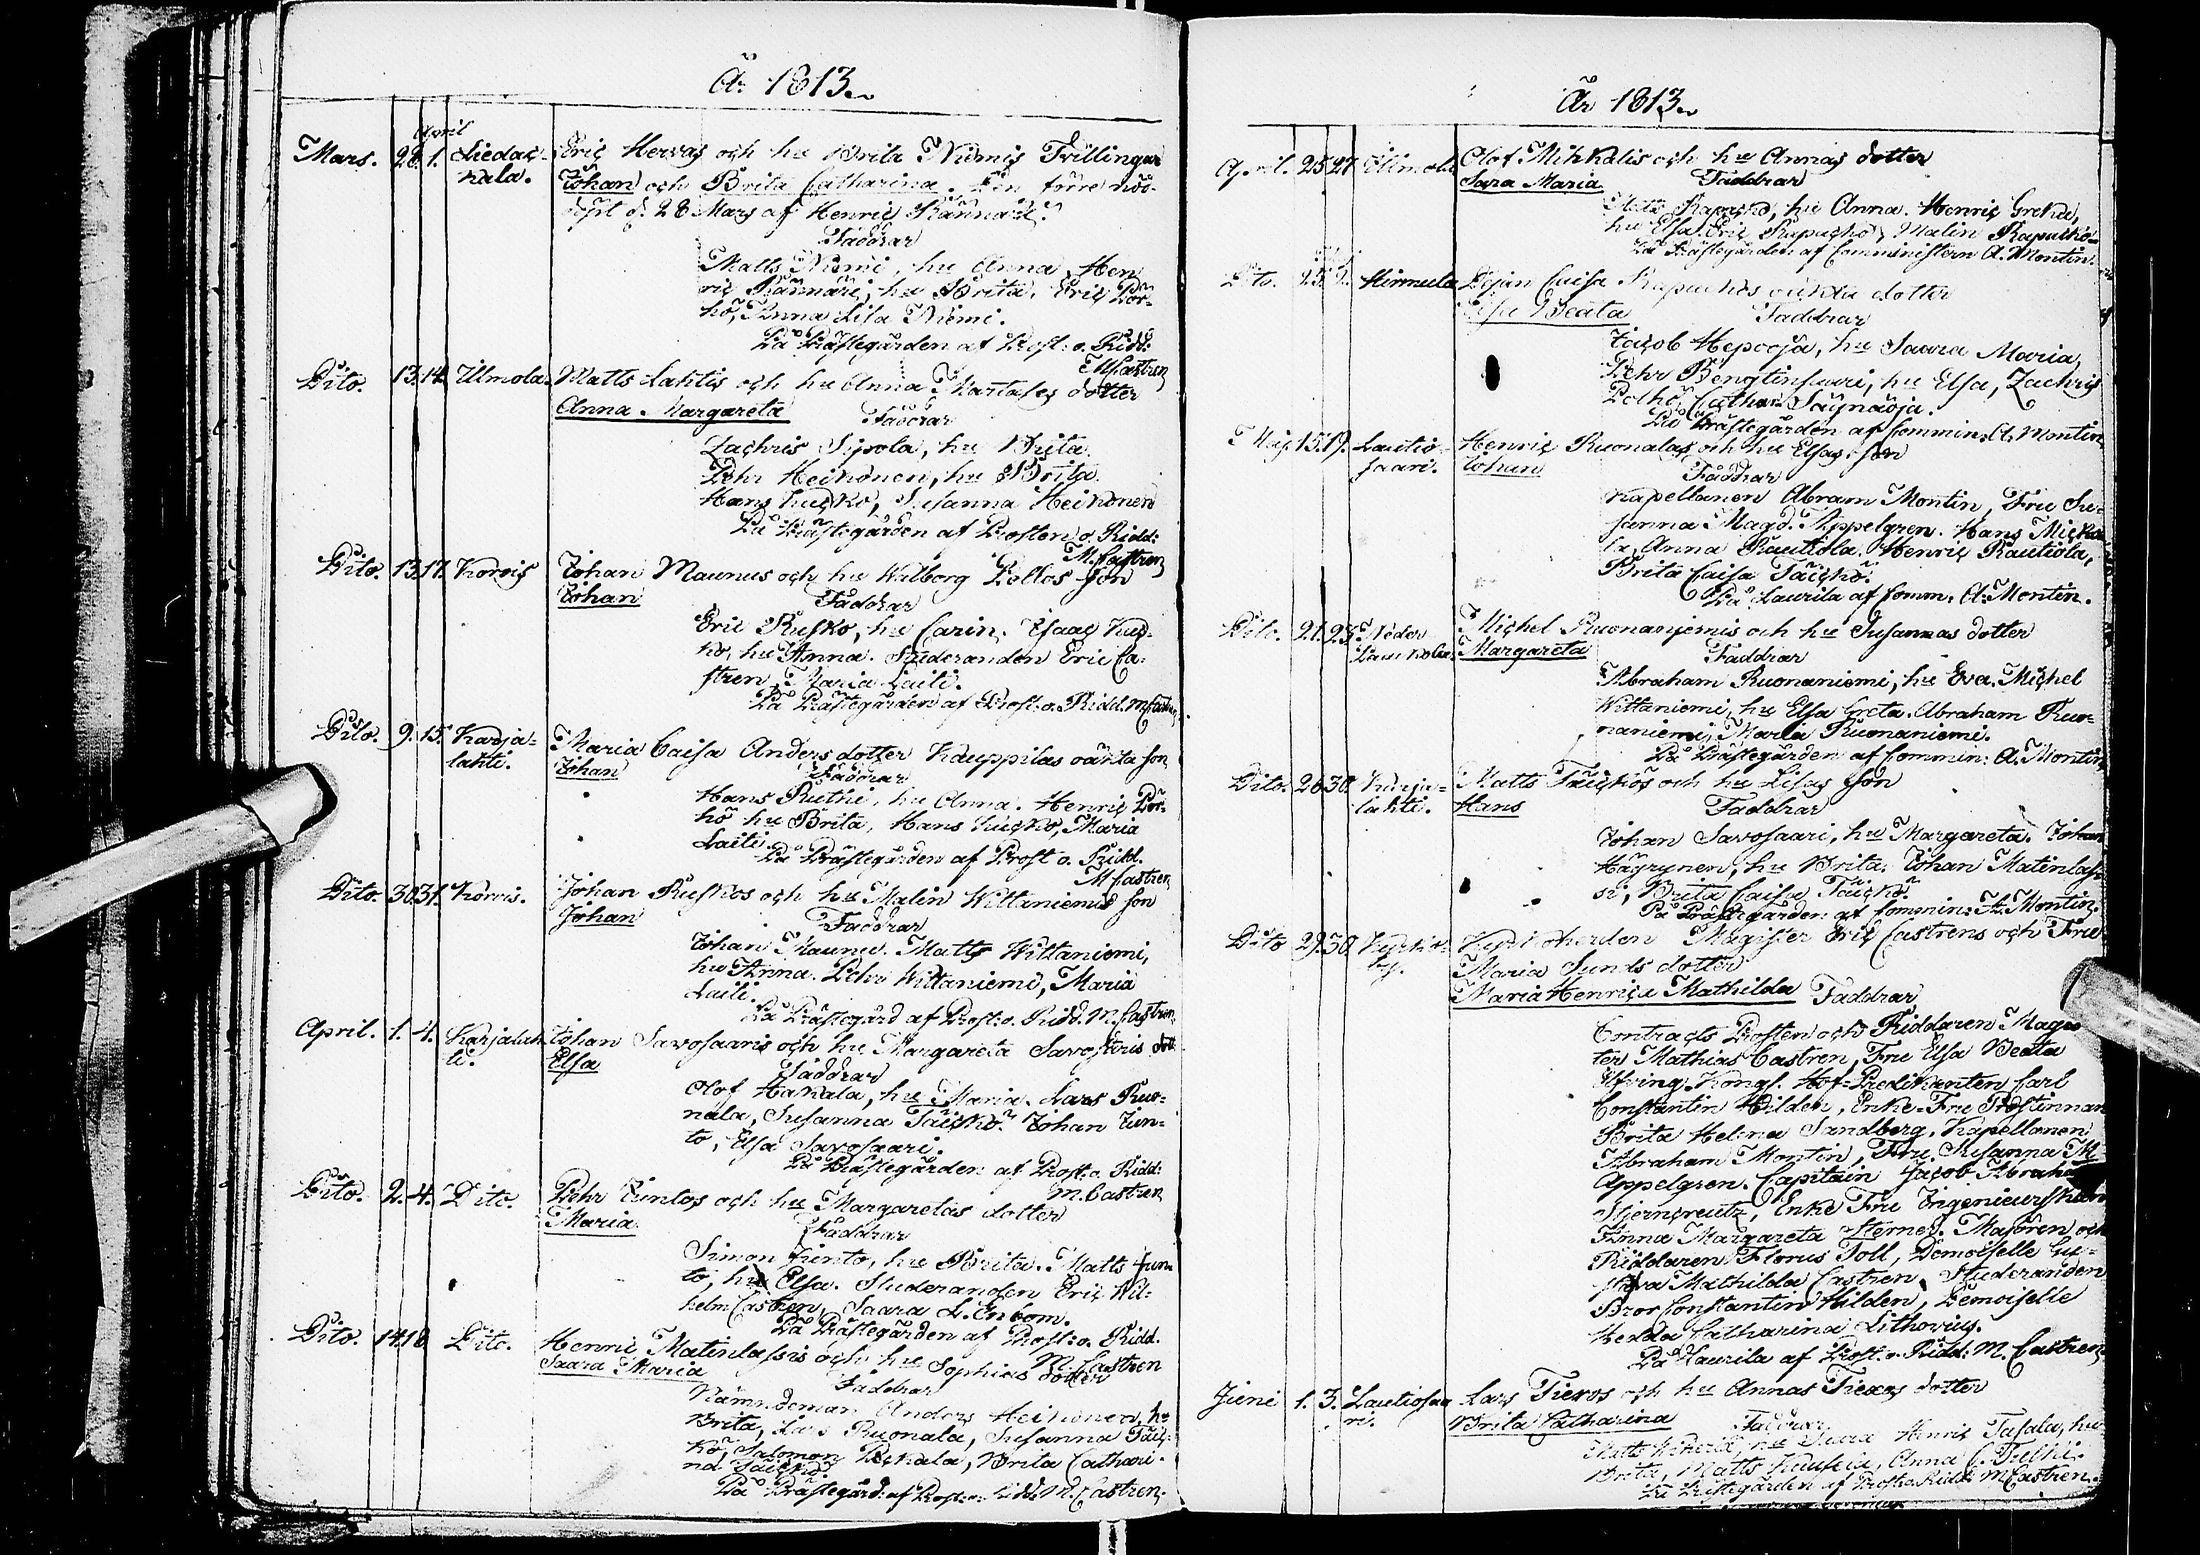 År 1813.
Mars. 28. 1. April Liedak- Eric Hervas och hu Brita Niemis Tvillingar
kala. Johan och Brita Catharina. Den förre nöd-
döpt d. 28 Mars af Henric Rännäri.
Faddrar
Matts Niemi, hu Anna, Hen
ric Rännäri, hu Brita. Eric Pör-
hö, Anna Lisa Niemi.
På Prästegården af Prost. o. Ridd:
M Castren
Dito. 13. 14. Ulmola Matts Lahtis och hu Anna dotter
Anna Margareta Faddrar
Zachris Sipola, hu Brita.
Pehr Heikonen, hu Brita.
Hans Kuckko, Susanna Heikonen
På Prästegården af Prosten o. Ridd:
M. Castren
Dito. 13. 17. Korvis Johan Maunus och hu Walborg Pollos son
Johan Faddrar
Eric Rusko, hu Carin. Isaac Kuck-
ko, hu Anna. Studeranden Eric Ca-
stren, Maria Laiti.
På Prästegården af Prost. o. Ridd. M Castren
Dito. 9. 15. Karja- Maria Caisa Anders dotter Kauppilas oäkta son
lahti. Johan Faddrar
Hans Ruthi, hu Anna. Henric Pör-
hö hu Brita, Hans Kuckko, Maria
Laiti.
På Prästegården af Prost o. Ridd.
M Castren
Dito. 30. 31. Korvis. Johan Ruskos och hu Malin Wittaniemis son
Johan Faddrar
Johan Maunu. Matts Wittaniemi,
hu Anna. Pehr Wittaniemi, Maria
Laiti.
På Prästegård af Prost. o. Ridd. M. Castren
April. 1. 4. Karjalah Johan Savosaaris och hu Margareta Savosaaris dott
ti. Elsa Faddrar
Olof Hakala, hu Maria. Lars Ruo-
nala, Susanna Täickkö. Johan Jun-
to, Elsa Savosaari.
På Prästegården af Prost. o Ridd:
M. Castren
Dito. 2. 4. Dito. Pehr Juntos och hu Margaretas dotter
Maria Faddrar
Simon Junto, hu Brita. Matts Jun-
to, hu Elsa. Studeranden Eric Wil-
helm Castren, Saara L. Enbom.
På Prästegården af Prost. o. Ridd.
M. Castren
Dito. 14. 18 Dito. Henric Matinlassis och hu Sophias dotter
Saara Maria Faddrar
Nämndeman Anders Heikonen, hu
Brita, Lars Ruonala, Susanna Täick-
kö, Salomon Pekkala, Brita Cathari-
na Täickkö.
På Prästegård: af Prost. o. Ridd. M. Castren.
År 1813.
April. 25. 27. Ilimola Olof Mihkalis och hu Annas dotter
Sara Maria Faddrar
Matts Rapacko, hu Anna. Henric Greku,
hu Elsa. Eric Rapacko, Malin Rapacko
På Prästegården af Comministern A. Montin.
Dito. 25. 2. Hirmula Pijan Caisa Rapackos oäkta dotter
Beata Faddrar
Jacob Hepooja, hu Saara Maria,
Pehr Bengtinsaari, hu Elsa, Zachris
Polho, Cathar. Säynäoja.
På Prästegården af Commin. A. Montin
Maj. 15. 19. Lautio- Henric Ruonalas och hu Elsas son
saari. Johan Faddrar
Kapellanen Abram Montin, Fru Su-
sanna Magd. Appelgren. Hans Micko-
la, Anna Rautiola. Henric Rautiola,
Brita Caisa Täickkö.
På Laurila af Comm. A. Montin.
Dito. 21. 23. Neder Michel Ruonaniemis och hu Susannas dotter
Paackola Margareta Faddrar
Abraham Ruonaniemi, hu Eva. Michel
Wittaniemi, hu Elsa Greta. Abraham Ruo-
naniemi, Maria Ruonaniemi.
På Prästegården af Commin: A. Montin
Dito. 26. 30. Karja- Matts Täickkös och hu Lisas son
lahti. Hans Faddrar
Johan Savosaari, hu Margareta. Johan
Hägrynen, hu Brita. Johan Matinlas-
si, Brita Caisa Täickkö.
På Prästegården af Commin: A. Montin.
Dito 29. 30. Kyrko- Kyrkoherden Magister Eric Castrens och Fru
by. Maria Sunds dotter
Maria Henrica Mathilda Faddrar
Contracts Prosten och Riddaren Magis
ter Mathias Castren, Fru Elsa Beata
Elfving. Kongl. Hof-Predikanten Carl
Constantin Hilden, Enke-Fru Prostinnan
Brita Helena Sandberg. Kapellanen
Abraham Montin, Fru Susanna M
Appelgren. Capitain Jacob Abraham
Stjerncreutz, Enke Fru Ingenieurskan
Anna Margareta Hernes. Majoren och
Riddaren Florus Toll, Demoiselle Gu-
stava Mathilda Castren, Studeranden
Bror Constantin Hilden, Demoiselle
Hedda Catharina Lithovius.
På Laurila af Prost. o. Ridd: M. Castren
Juni 1. 3. Lautiosaa Lars Tievos och hu Annas dotter
ri. Brita Catharina Faddrar
Matts hu Saara Henric Tasala, hu
Brita, Matts Anna C.
På Prästegården af Prost. o. Ridd. M Castren.